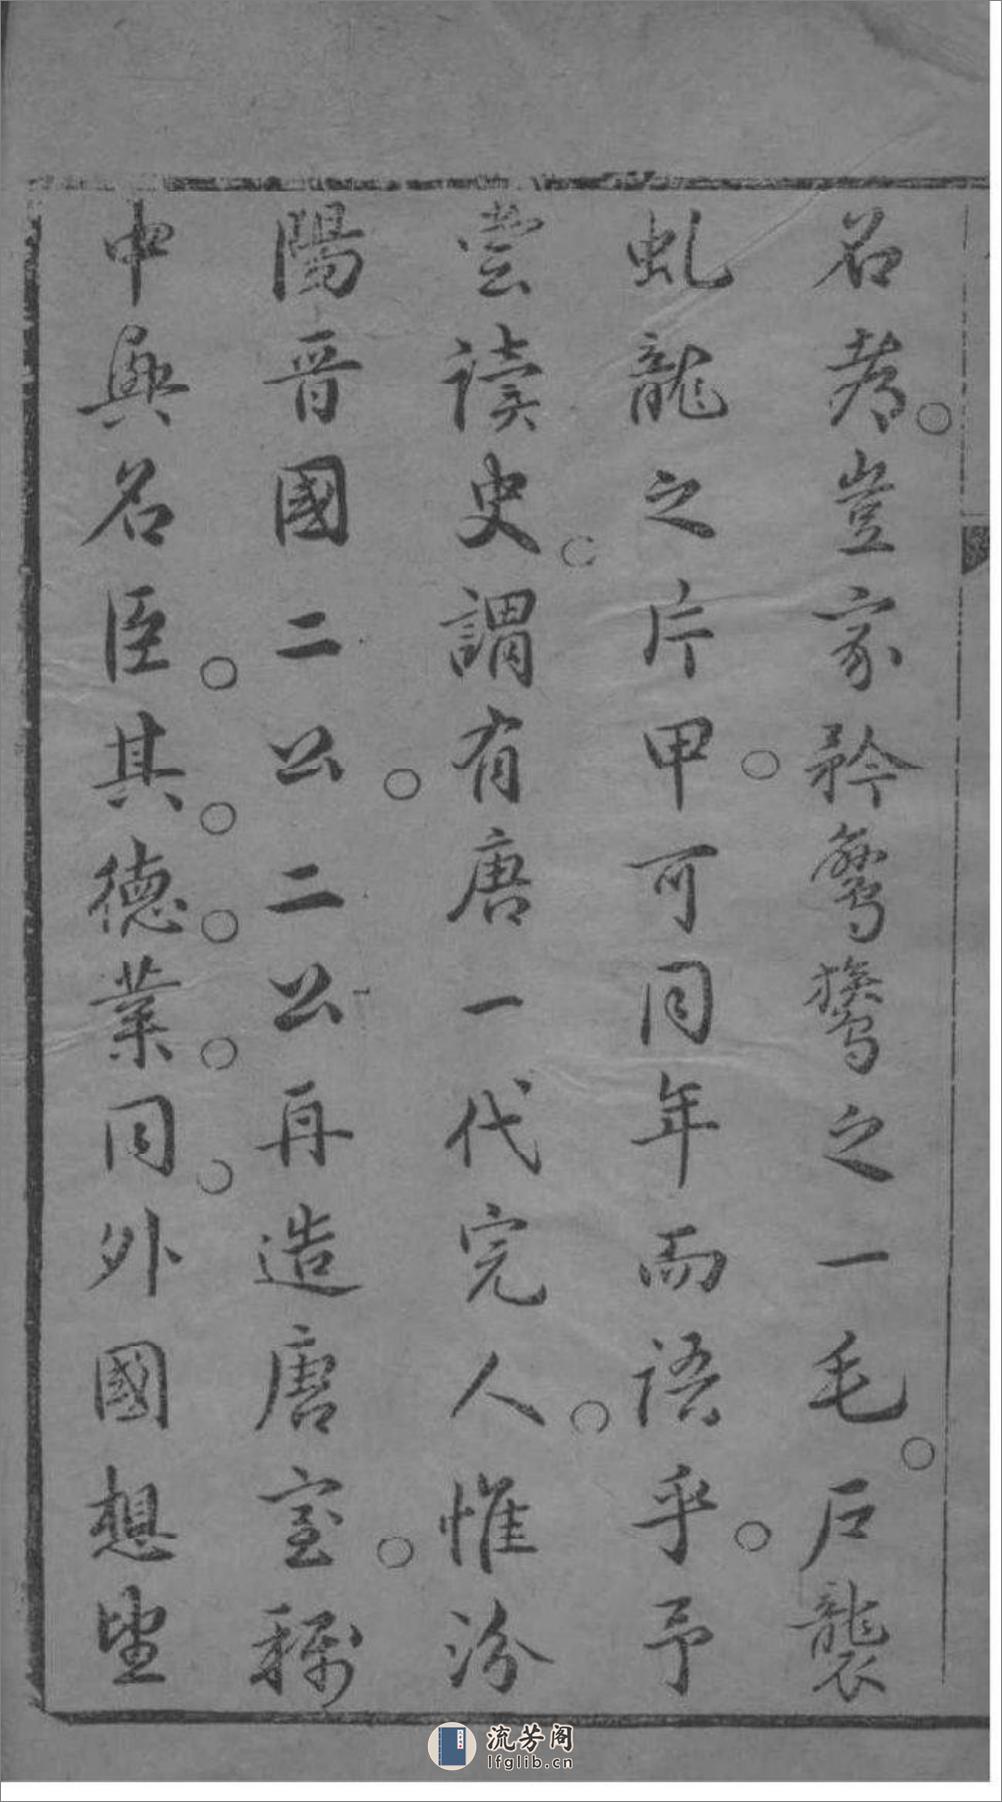 名者豈家矜鴛鴦之一毛戶襲
虬龍之片甲可同年而語乎予
嘗讀史謂有唐一代完人惟汾
陽晉國二公二公再造唐室稱
中興名臣其德業同外國想望
流芳阁
lfglib.cn